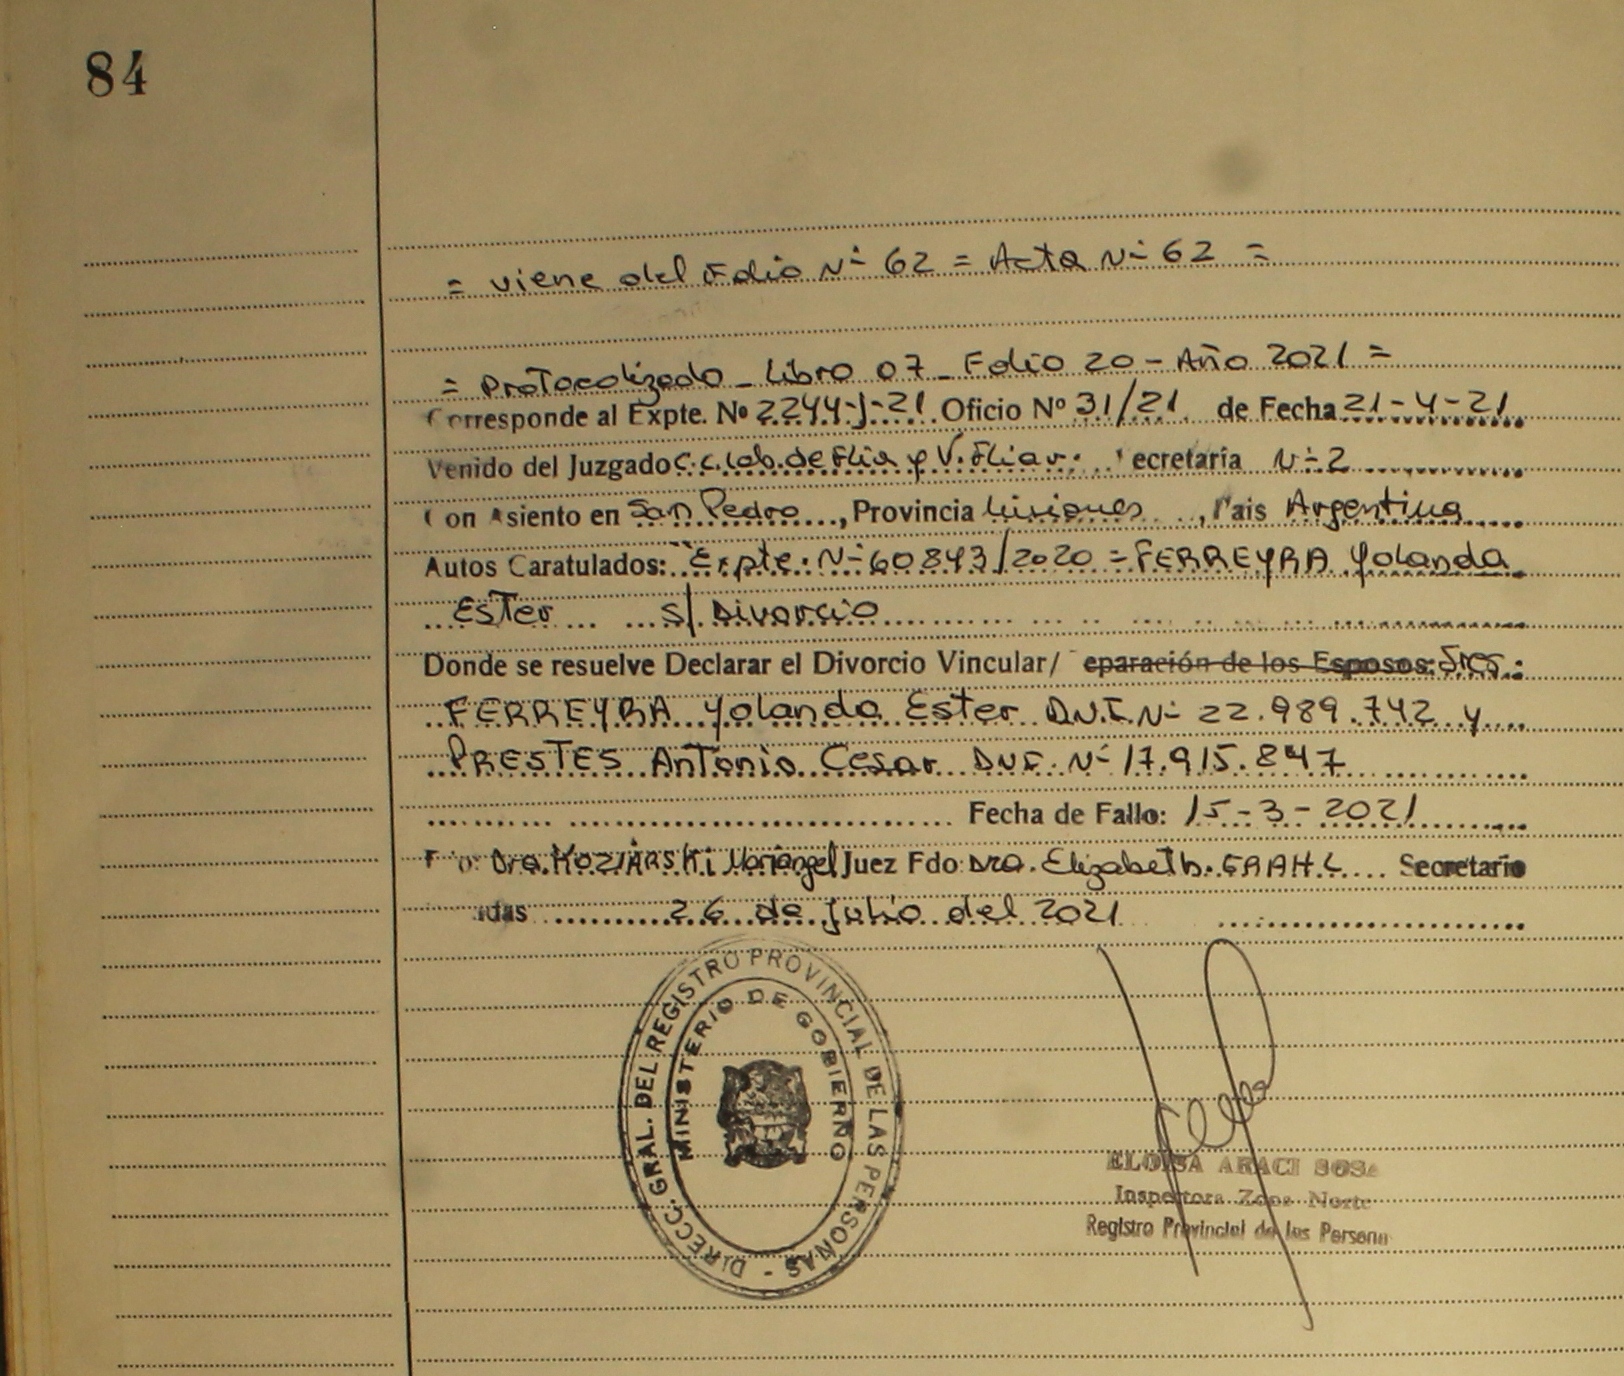 84
= viene del Folio Nº 62 = Acta Nº 62 =
= Protocolizado - Libro 07 - Folio 20 - Año 2021 =
Corresponde al Expte. Nº 2244-J-21 Oficio Nº 31/21 de Fecha 21-4-21
Venido del Juzgado C.C. Lab. de Flia y V. Fliar. ecretaría Nº 2
on Asiento en San Pedro, Provincia Misiones, Pais Argentina
Autos Caratulados: "Expte. Nº 60843/2020 = FERREYRA Yolanda
Ester s/ Divorcio
Donde se resuelve Declarar el Divorcio Vincular/ eparación de los Esposos: Sres.:
FERREYRA Yolanda Ester D.N.I. Nº 22.989.742 y
PRESTES Antonio Cesar DNI. Nº 17.915.847
Fecha de Fallo: 15-3-2021
Dra. KOZIARSKI Mariangel Juez Fdo Dra. Elizabeth Secretario
adas 26 de Julio del 2021
DIRECC. GRAL. DEL REGISTRO PROVINCIAL DE LAS PERSONAS -
MINISTERIO DE GOBIERNO
ELOISA ARACI SOSA
Inspectora Zona Norte
Registro Provincial de las Persona